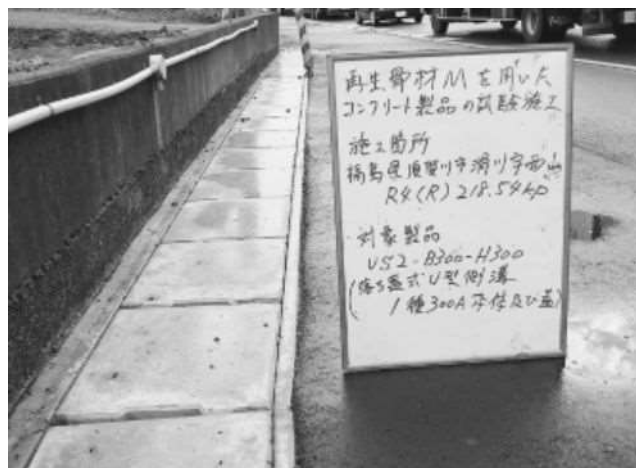 再生骨材Mを用いた
コンクリート製品の試験施工
施工箇所
福島県須賀川市滑川字西山
R4(R)218.54kp
対象製品
US2-B300-H300
(落ち蓋式U型側溝
1種300A本体及び蓋)